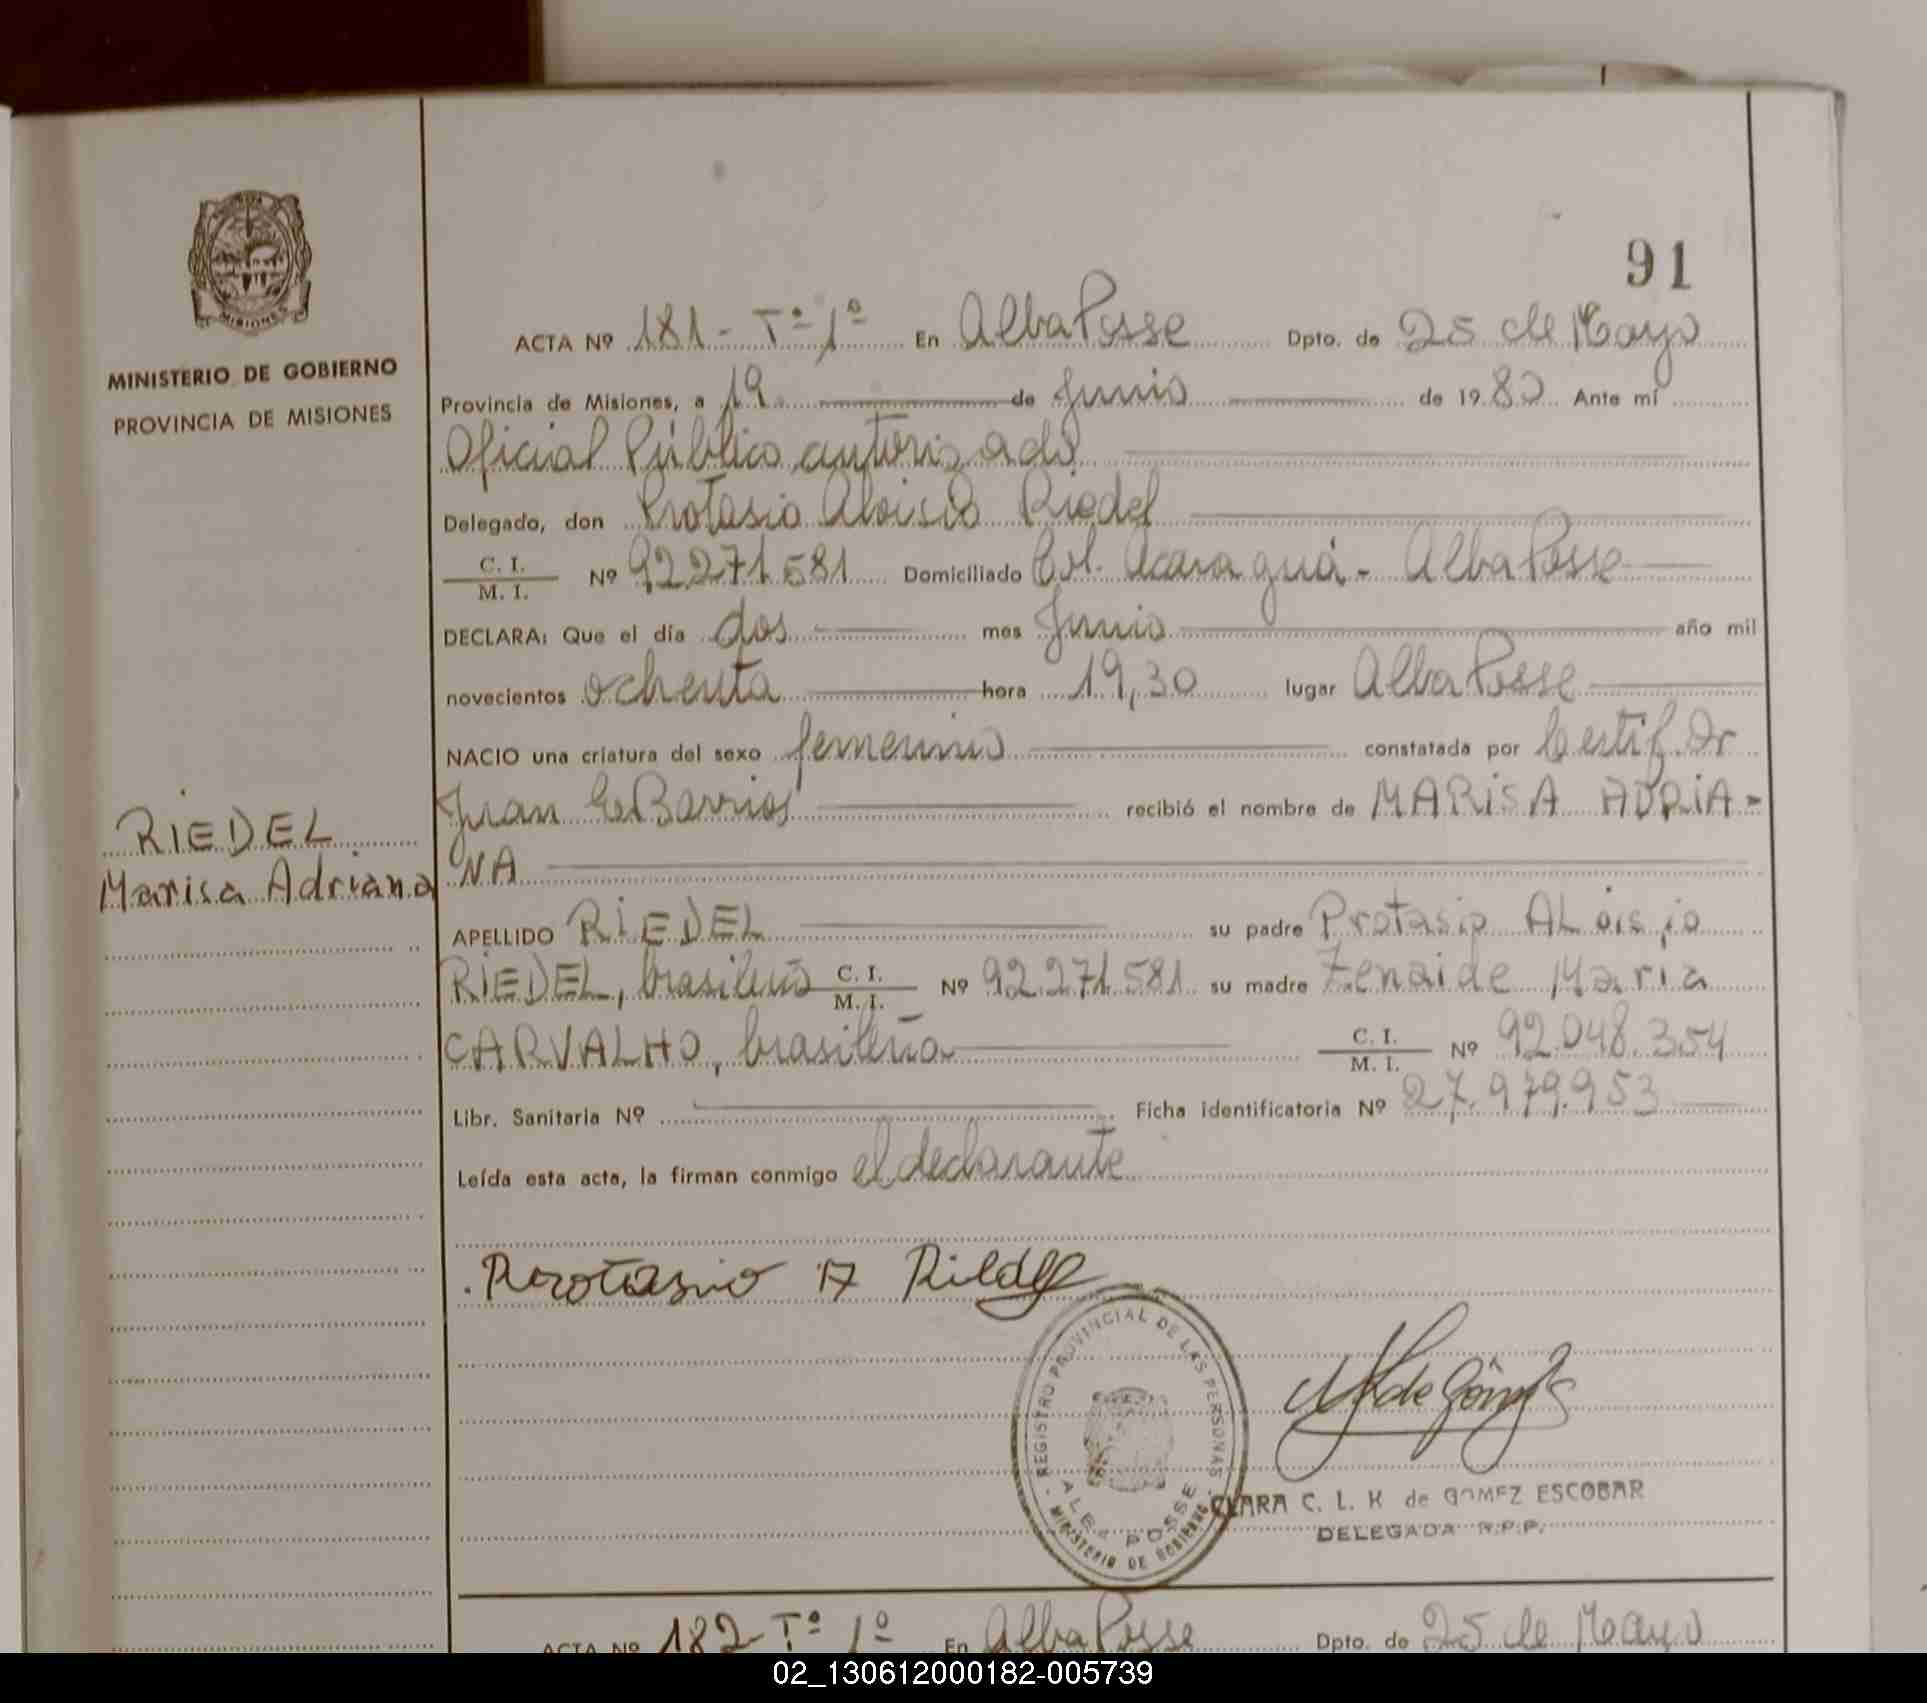 91
ACTA Nº 181 - Tº 1º En Alba Posse Dpto. de 25 de Mayo
MISIONES
MINISTERIO DE GOBIERNO
PROVINCIA DE MISIONES
Provincia de Misiones, a 19 de Junio de 1980 Ante mí
Oficial Público autorizado
Delegado, don Protasio Aloisio Riedel
C. I.
M. I. Nº 92.271.581 Domiciliado Col. Acaraguá - Alba Posse
DECLARA: Que el día dos mes Junio año mil
novecientos ochenta hora 19,30 lugar Alba Posse
NACIO una criatura del sexo femenino constatada por Certif. Dr
Juan C. Barrios recibió el nombre de MARISA ADRIA-
NA
RIEDEL
Marisa Adriana
APELLIDO RIEDEL su padre Protasio ALoisio
RIEDEL, brasileño C. I. M. I. Nº 92.271.581 su madre Zenaide Maria
CARVALHO, brasileña C. I. M. I. Nº 92.048.354
Libr. Sanitaria Nº Ficha identificatoria Nº 27.979.953
Leída esta acta, la firman conmigo el declarante
Protasio A Riedel
REGISTRO PROVINCIAL DE LAS PERSONAS
ALBA POSSE
MINISTERIO DE GOBIERNO
CLARA C. L. K de GOMEZ ESCOBAR
DELEGADA R.P.P.
ACTA Nº 182 - Tº 1º En Alba Posse Dpto. de 25 de Mayo
02_130612000182-005739